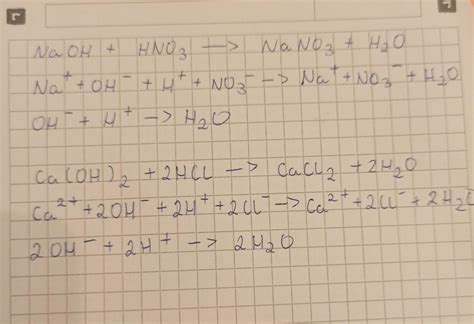 NaOH + HNO₃ —> NaNO₃ + H₂O
Na⁺ + OH⁻ + H⁺ + NO₃⁻ —> Na⁺ + NO₃⁻ + H₂O
OH⁻ + H⁺ —> H₂O
Ca(OH)₂ + 2HCl —> CaCl₂ + 2H₂O
Ca²⁺ + 2OH⁻ + 2H⁺ + 2Cl⁻ —> Ca²⁺ + 2Cl⁻ + 2H₂O
2OH⁻ + 2H⁺ —> 2H₂O